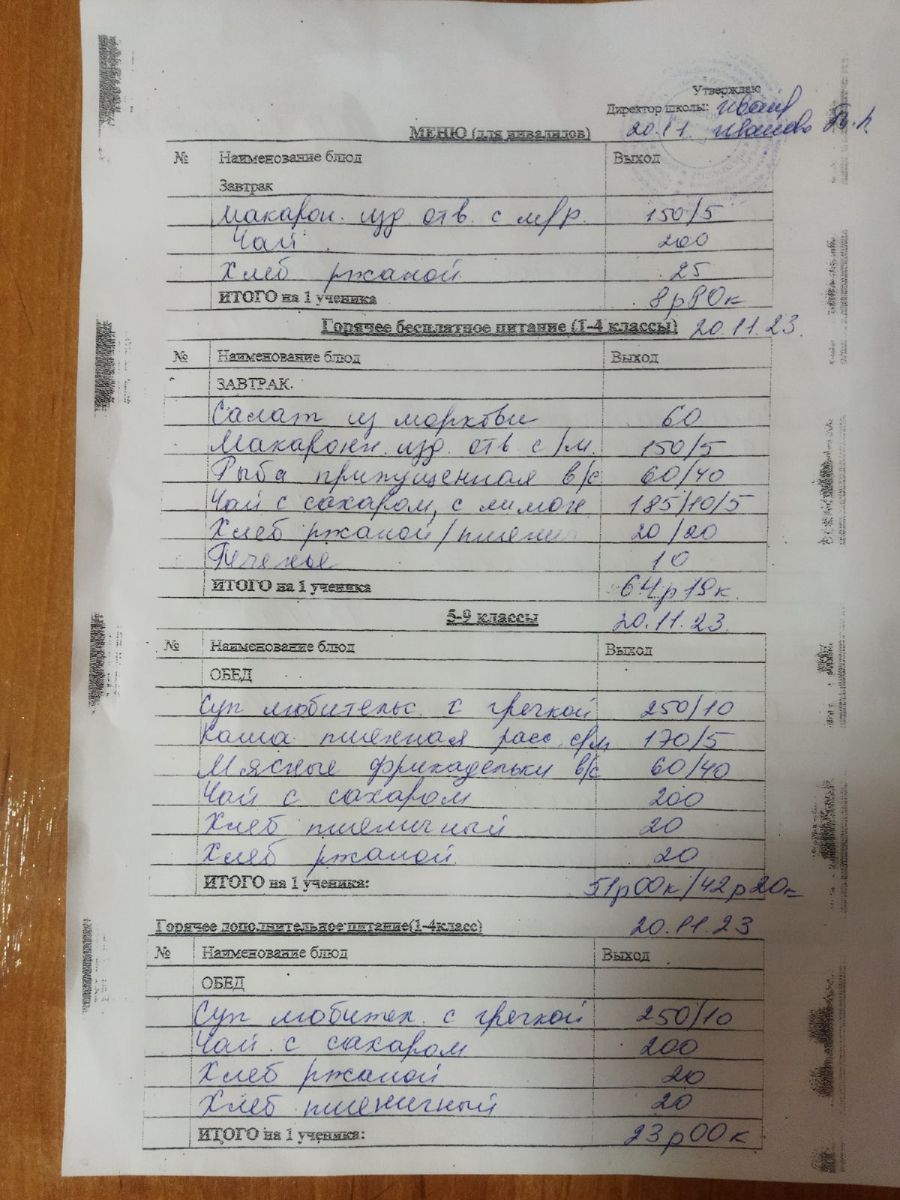 Утверждаю
Директор школы:
МЕНЮ (для инвалидов) 20.11 Иванова
№ Наименование блюд Выход
Завтрак
Макарон. изд отв. с м/р. 150/5
Чай 200
Хлеб ржаной 25
ИТОГО на 1 ученика 8р90к
Горячее бесплатное питание (1-4 классы) 20.11.23.
№ Наименование блюд Выход
ЗАВТРАК.
Салат из моркови 60
Макаронн. изд. отв с/м. 150/5
Рыба припущенная в/с 60/40
Чай с сахаром, с лимон 185/10/5
Хлеб ржаной/пшенич 20/20
Печенье 10
ИТОГО на 1 ученика 64р19к.
5-9 классы 20.11.23.
№ Наименование блюд Выход
ОБЕД
Суп любительс. с гречкой 250/10
Каша пшенная расс. с/м 170/5
Мясные фрикадельки в/с 60/40
Чай с сахаром 200
Хлеб пшеничный 20
Хлеб ржаной. 20
ИТОГО на 1 ученика: 51р00к/42р20к
Горячее дополнительное питание(1-4класс) 20.11.23
№ Наименование блюд Выход
ОБЕД
Суп любител. с гречкой 250/10
Чай с сахаром 200
Хлеб ржаной 20
Хлеб пшеничный 20
ИТОГО на 1 ученика: 23р00к